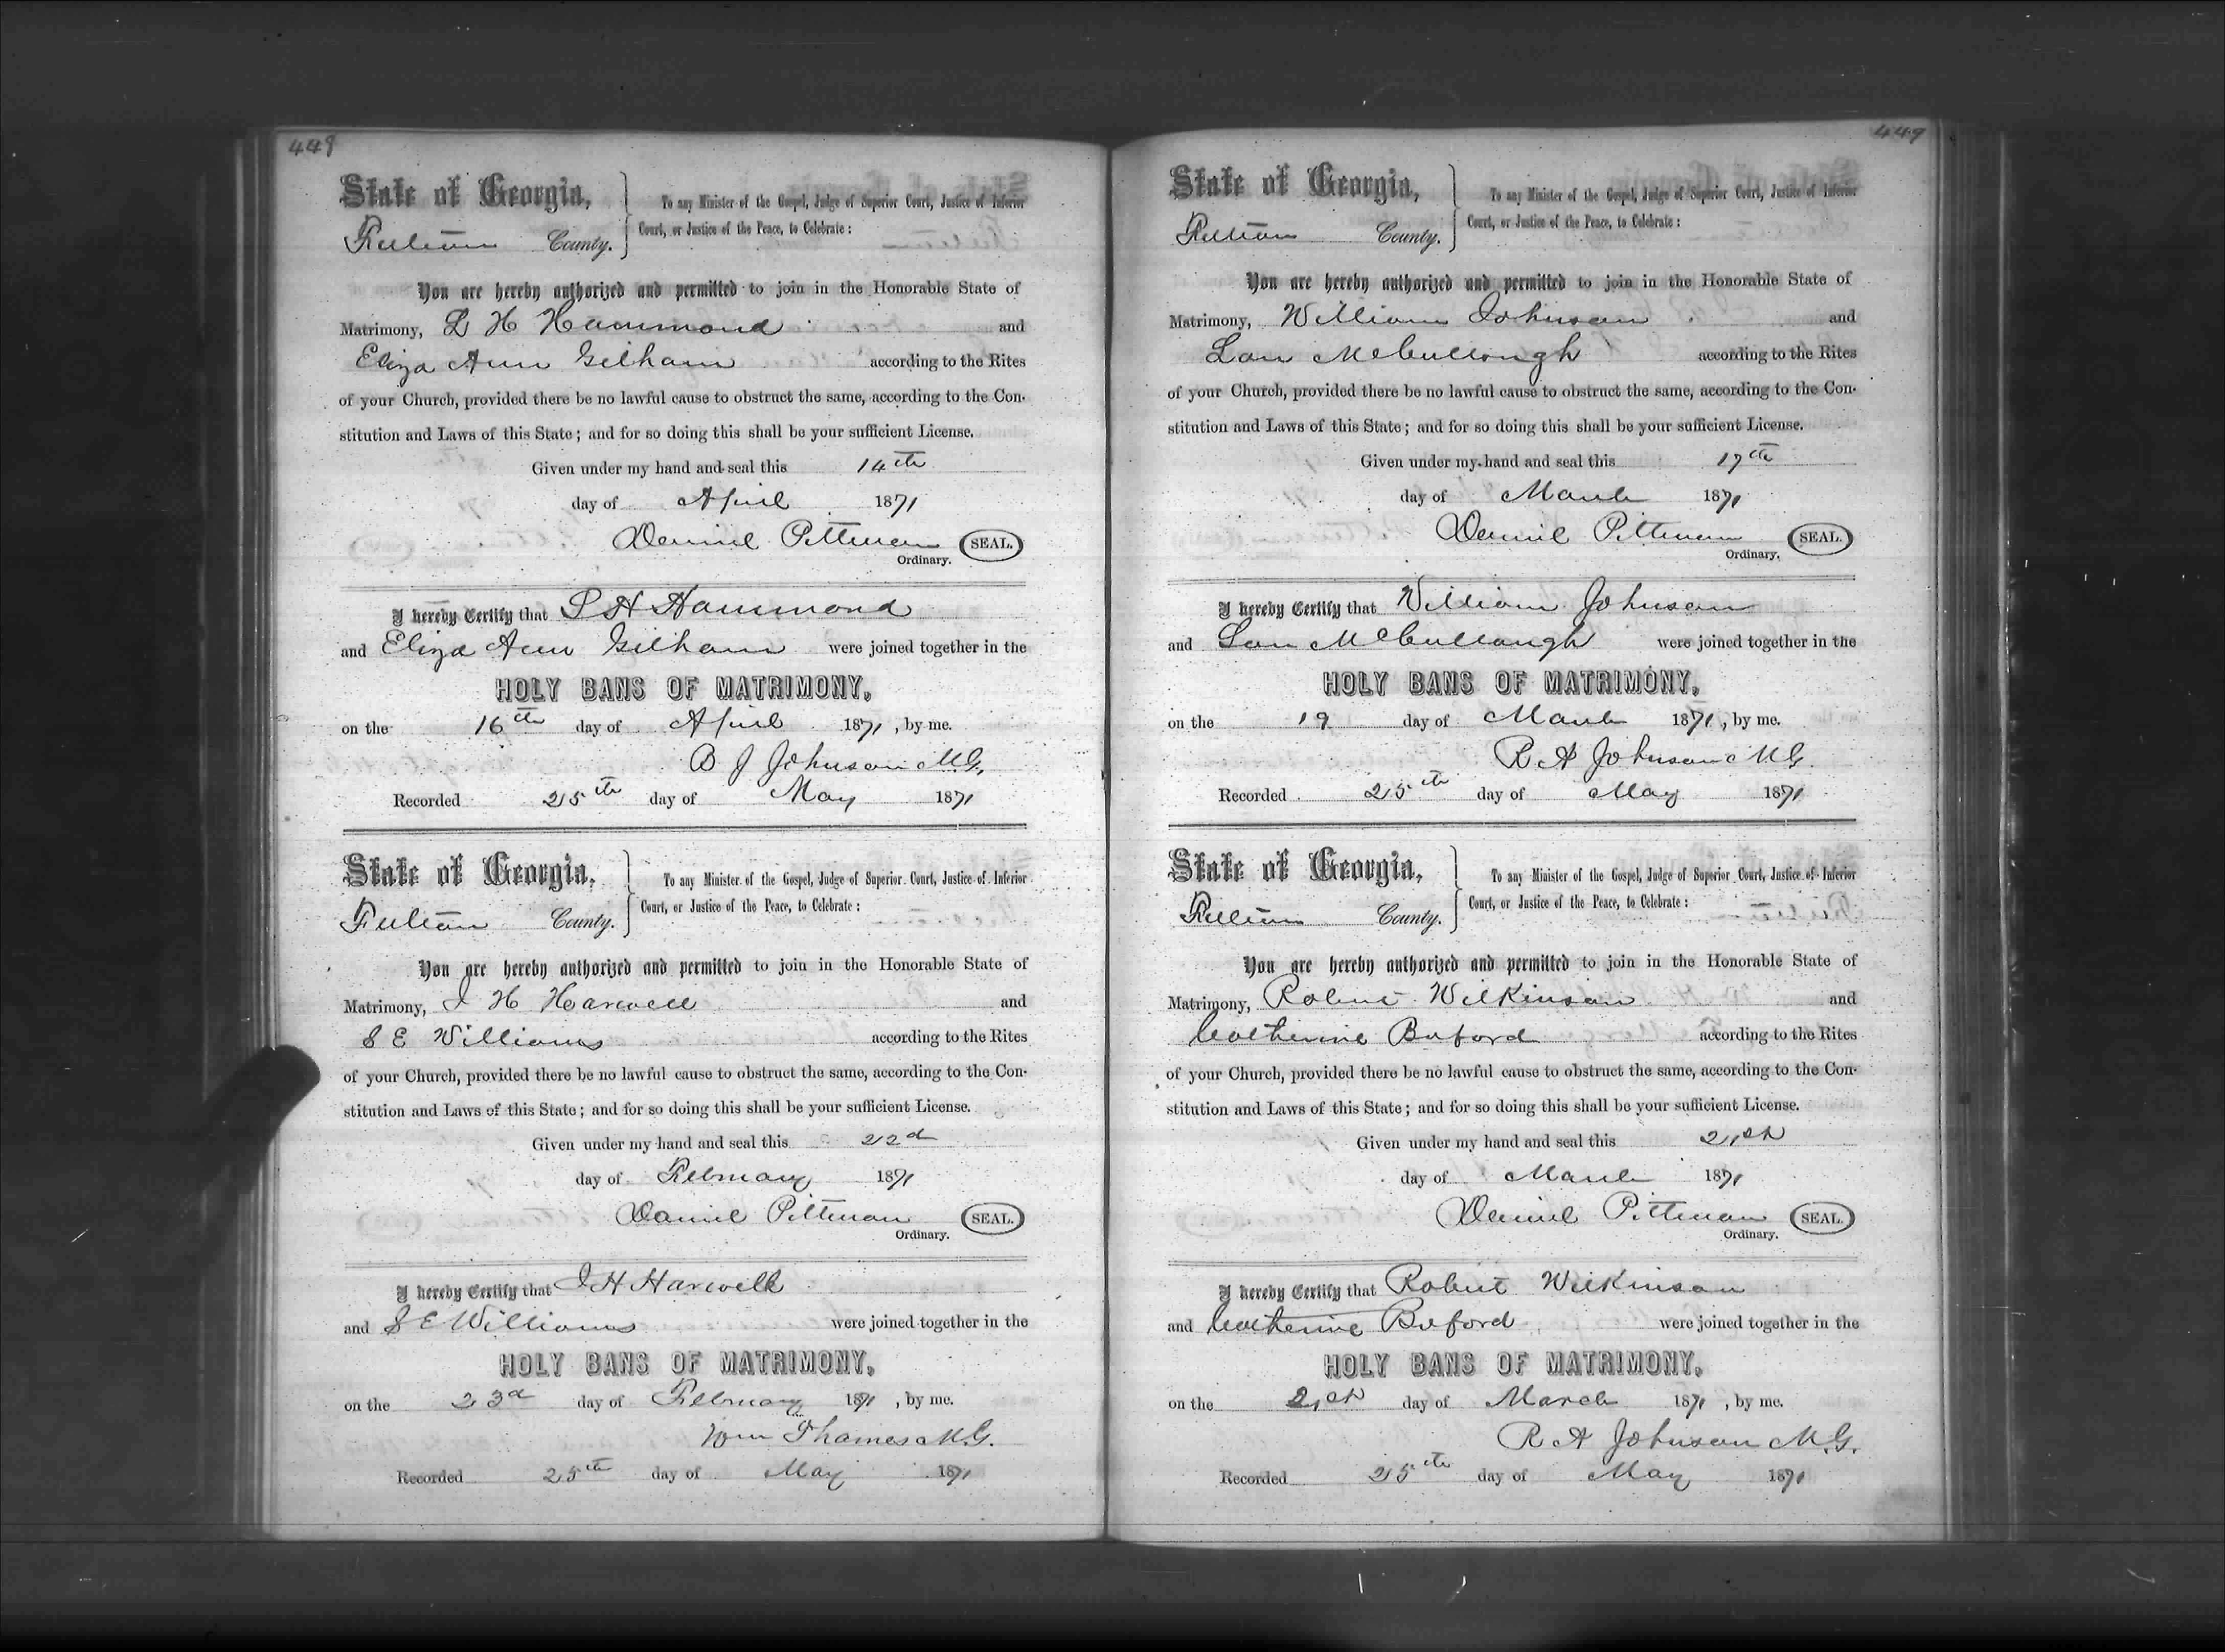 448
State of Georgia,
To any Minister of the Gospel, Judge of Superior Court, Justice of Inferior
Fulton County.
Court, or Justice of the Peace, to Celebrate :
You are hereby authorized and permitted to join in the Honorable State of
Matrimony, L H Hammond and
Eliza Ann Gilham according to the Rites
of your Church, provided there be no lawful cause to obstruct the same, according to the Con-
stitution and Laws of this State; and for so doing this shall be your sufficient License.
Given under my hand and seal this 14th
day of April 1871
Daniel Pittman SEAL.
Ordinary.
I hereby Certify that L H Hammond
and Eliza Ann Gilham were joined together in the
HOLY BANS OF MATRIMONY,
on the 16th day of April 1871, by me.
B J Johnson M.G.
Recorded 25th day of May 1871
State of Georgia,
To any Minister of the Gospel, Judge of Superior Court, Justice of Inferior
Fulton County.
Court, or Justice of the Peace, to Celebrate :
You are hereby authorized and permitted to join in the Honorable State of
Matrimony, J H Harwell and
S E Williams according to the Rites
of your Church, provided there be no lawful cause to obstruct the same, according to the Con-
stitution and Laws of this State; and for so doing this shall be your sufficient License.
Given under my hand and seal this 22d
day of February 1871
Daniel Pittman SEAL.
Ordinary.
I hereby Certify that J H Harwell
and S E Williams were joined together in the
HOLY BANS OF MATRIMONY,
on the 23d day of February 1871, by me.
Wm Thames M.G.
Recorded 25th day of May 1871
449
State of Georgia,
To any Minister of the Gospel, Judge of Superior Court, Justice of Inferior
Fulton County.
Court, or Justice of the Peace, to Celebrate :
You are hereby authorized and permitted to join in the Honorable State of
Matrimony, William Johnson and
Lou McCullough according to the Rites
of your Church, provided there be no lawful cause to obstruct the same, according to the Con-
stitution and Laws of this State; and for so doing this shall be your sufficient License.
Given under my hand and seal this 17th
day of March 1871
Daniel Pittman SEAL.
Ordinary.
I hereby Certify that William Johnson
and Lou McCullough were joined together in the
HOLY BANS OF MATRIMONY,
on the 19 day of March 1871, by me.
R A Johnson M.G.
Recorded 25th day of May 1871
State of Georgia,
To any Minister of the Gospel, Judge of Superior Court, Justice of Inferior
Fulton County.
Court, or Justice of the Peace, to Celebrate :
You are hereby authorized and permitted to join in the Honorable State of
Matrimony, Robert Wilkinson and
Catherine Buford according to the Rites
of your Church, provided there be no lawful cause to obstruct the same, according to the Con-
stitution and Laws of this State; and for so doing this shall be your sufficient License.
Given under my hand and seal this 21st
day of March 1871
Daniel Pittman SEAL.
Ordinary.
I hereby Certify that Robert Wilkinson
and Catherine Buford were joined together in the
HOLY BANS OF MATRIMONY,
on the 21st day of March 1871, by me.
R A Johnson M.G.
Recorded 25th day of May 1871